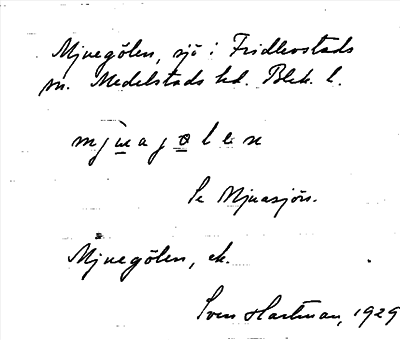 Mjuegölen, sjö i Fridlevstads
sn. Medelstads hd. Blek. l.
mju̲ajɵ̲len
Se Mjuasjön.
Mjuegölen, ek.
Sven Hartman, 1929